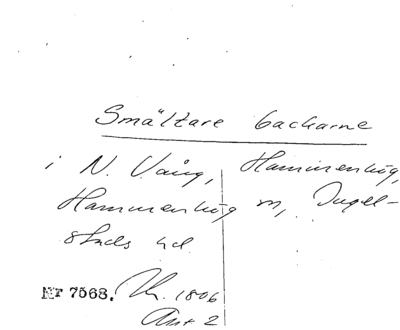 Smältare backarne
i N. Vång, Hammenhög,
Hammenhög m, Ingel-
stads hd.
Nr 7568. Kr. 1806
Ant 2